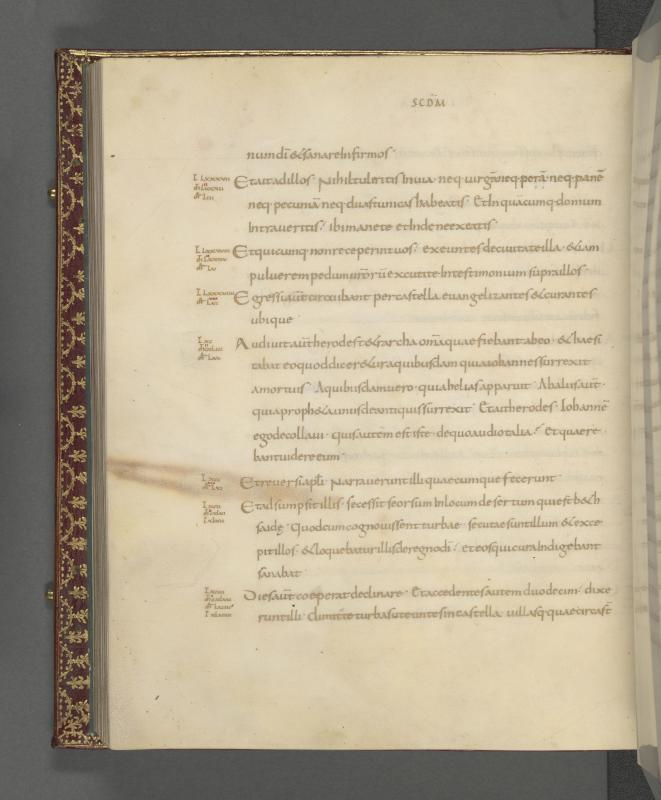 SCDM̄
num dī & sanare Infirmos·
Et ait ad illos· Nihil tuleritis In uia· neq· uirgā neq· perā· neq· panē
neq· pecuniā neq· duas tunicas habeatis· Et In quacumq· domum
Intraueritis· Ibi manete et Inde ne exeatis·
Et quicumq· non receperint uos· exeuntes de ciuitate illa· & iam
puluerem pedum uestrorū excutite In testimonium supra illos·
Egressi aūt circuibant per castella euangelizantes & curantes
ubique·
Audiuit aūt herodes t&rarcha omīa quae fiebant ab eo· & haesi
tabat eo quod dicer&ur a quibusdam quia iohannes surrexit
a mortuis· A quibusdam uero· quia helias apparuit· Ab aliis aūt·
quia proph&a unus de antiquis surrexit· Et ait herodes· Iohannē
ego decollaui· quis autem est iste· de quo audio talia· Et quaere
bant uidere eum·
Et reuersi apłi· Narrauerunt illi quaecumque fecerunt·
Et adsumpsit illis· secessit seorsum In locum desertum qui est b&h
saidę· Quod cum cognouissent turbae· secutae sunt illum· & exce
pit illos· & loquebatur illis de regno dī· et eos qui cura Indigebant
sanabat·
Dies aūt coeperat declinare· Et accedentes autem duodecim· dixe
runt illi· Dimitte turbas ut euntes in castella· uillasq· quae circa st̄